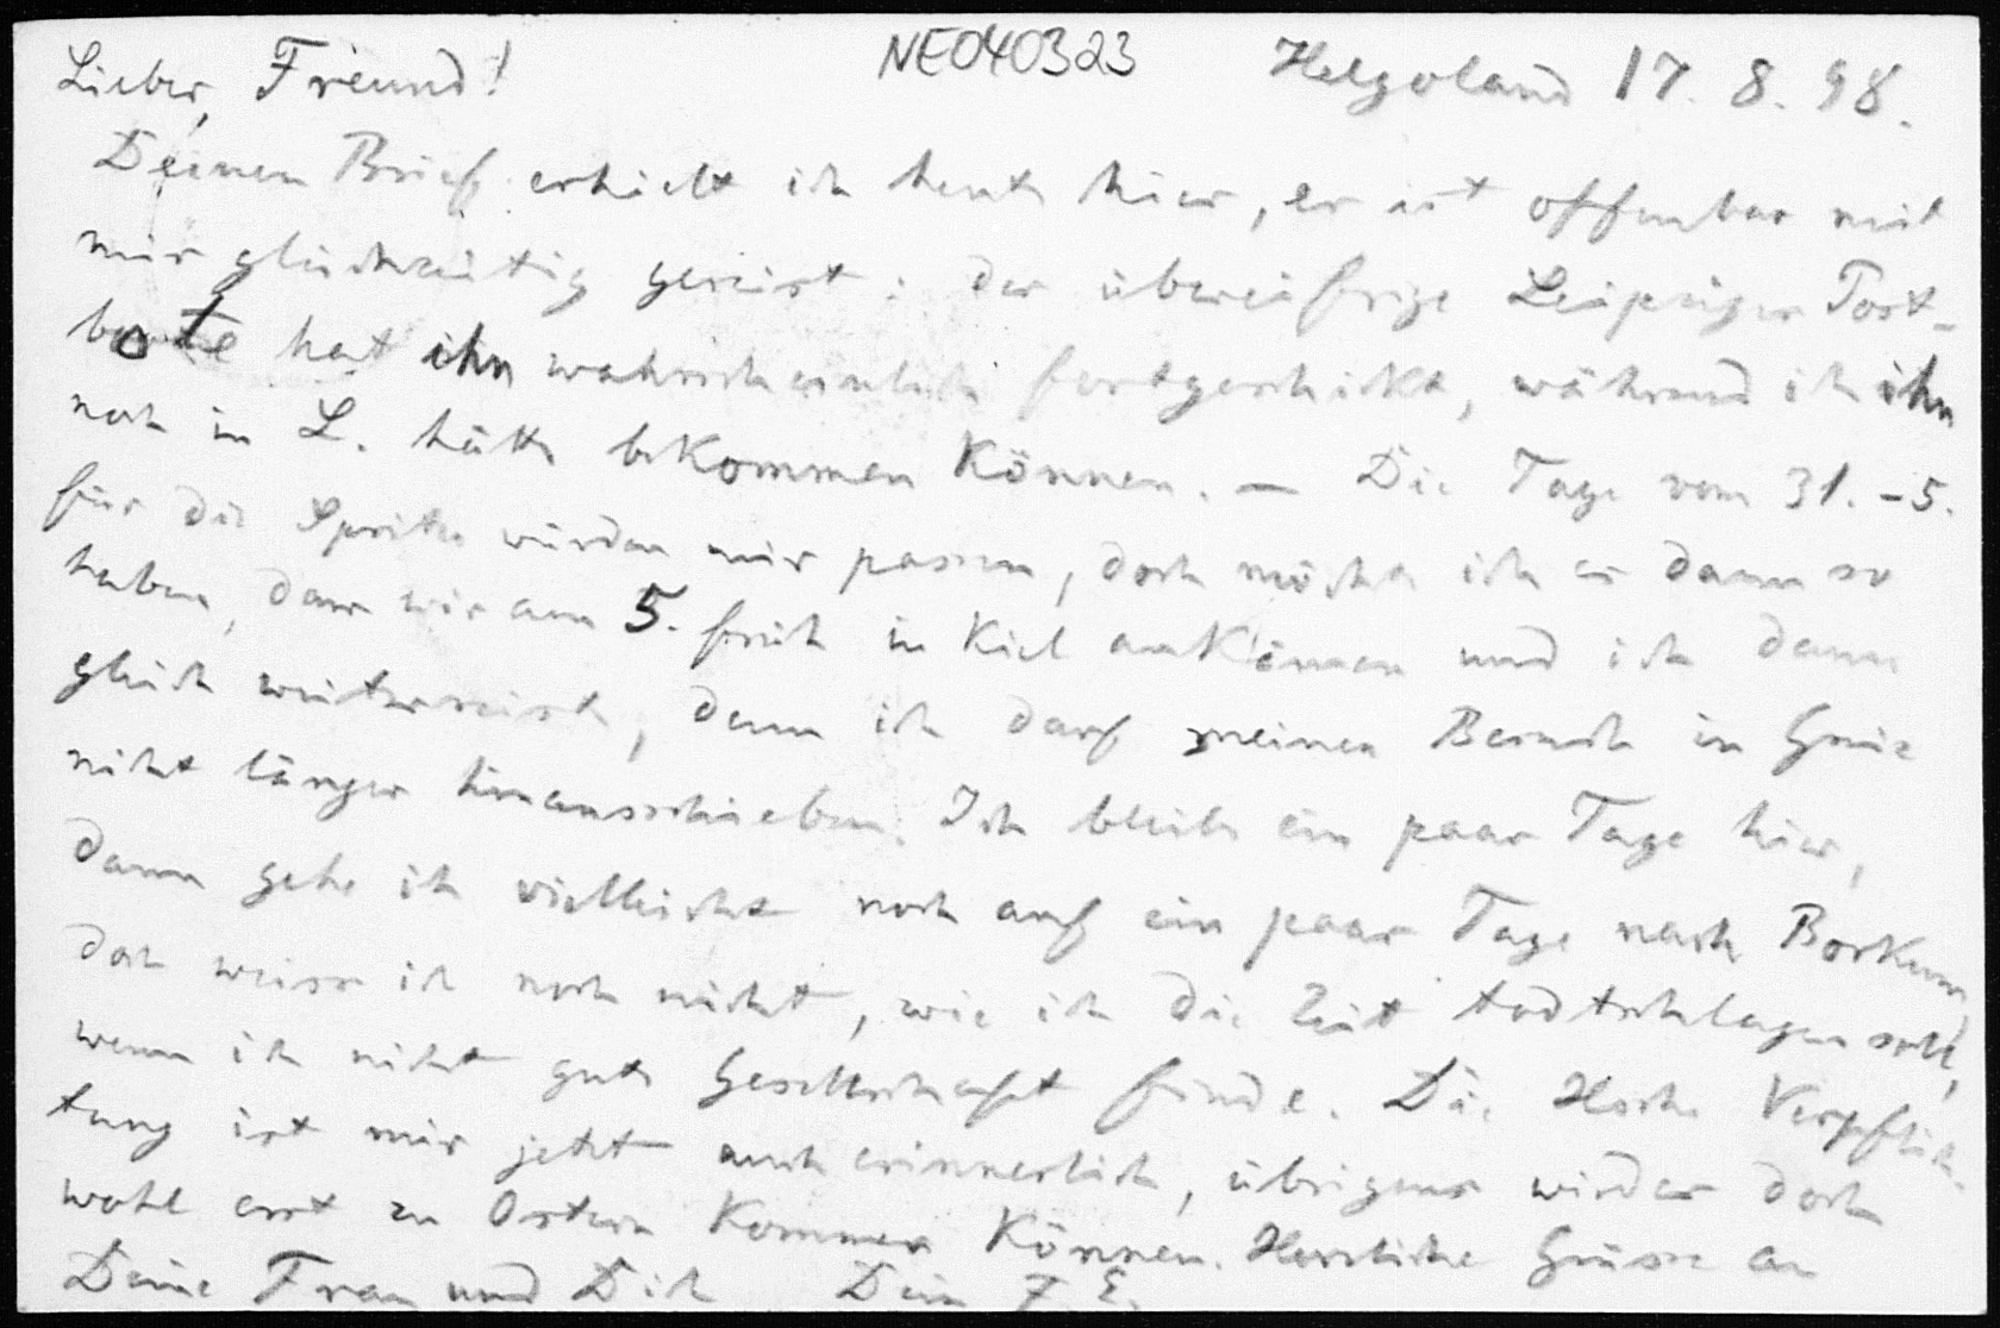 NE040323
Lieber Freund! Helgoland 17. 8. 98.
Deinen Brief erhielt ich heute hier, er ist offenbar mit
mir gleichzeitig gereist: der übereifrige Leipziger Post-
bote hat ihn wahrscheinlich fortgeschickt, während ich ihn
noch in L. hätte bekommen können. — Die Tage vom 31. - 5.
für die Spritze würden mir passen, doch möchte ich es dann so
haben, dass wir am 5. früh in Kiel ankämen und ich dann
gleich weiterreiste, denn ich darf meinen Besuch in
nicht länger hinausschieben. Ich bleibe ein paar Tage hier,
dann gehe ich vielleicht noch auf ein paar Tage nach Borkum,
doch weiss ich noch nicht, wie ich die Zeit todtschlagen soll,
wenn ich nicht gute Gesellschaft finde. Die Verpflich-
tung ist mir jetzt auch erinnerlich, übrigens wird er doch
wohl erst zu Ostern kommen können. Herzliche Grüsse an
Deine Frau und Dich Dein F. E.